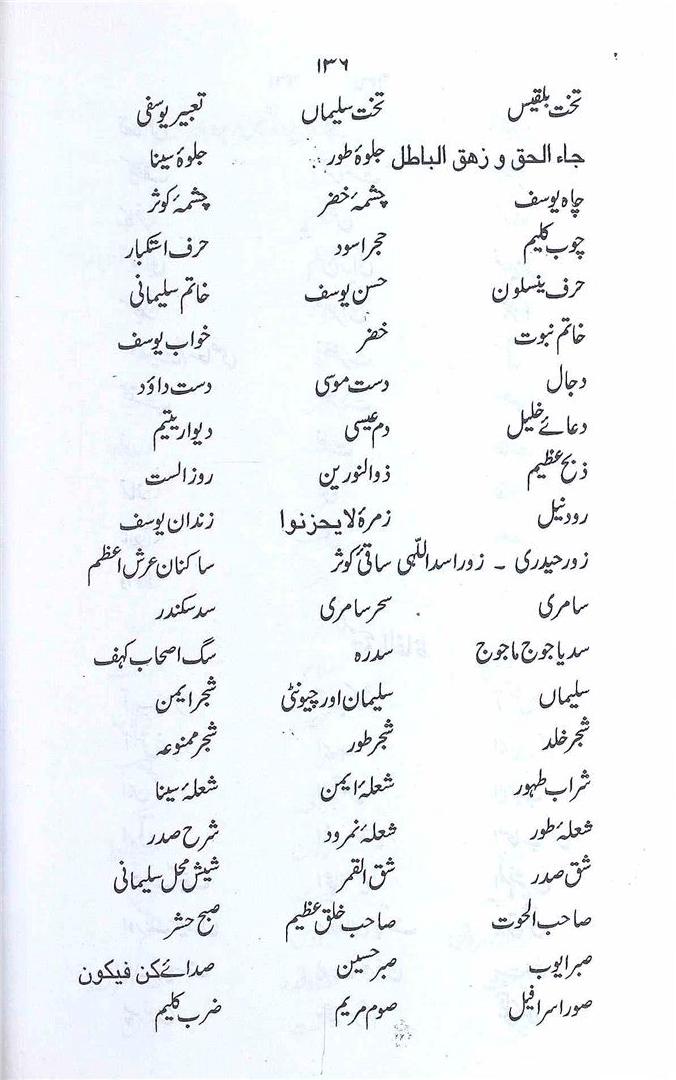 ۱۳۶
تخت بلقیس تخت سلیماں تعبیر یوسفی
جاء الحق و زھق الباطل جلوۂ طور جلوۂ سینا
چاہ یوسف چشمۂ خضر چشمۂ کوثر
چوب کلیم حجر اسود حرف استکبار
حرف ینسلون حسن یوسف خاتم سلیمانی
خاتم نبوت خضر خواب یوسف
دجال دست موسی دست داؤد
دعائے خلیل دم عیسی دیوار یتیم
ذبح عظیم ذوالنورین روز الست
رود نیل زمرۂ لا یحزنوا زندان یوسف
زور حیدری ۔ زور اسد اللّٰہی ساقئ کوثر ساکنان عرش اعظم
سامری سحر سامری سد سکندر
سد یاجوج ماجوج سدرہ سگ اصحاب کہف
سلیماں سلیمان اور چیونٹی شجر ایمن
شجر خلد شجر طور شجر ممنوعہ
شراب طہور شعلۂ ایمن شعلۂ سینا
شعلۂ طور شعلۂ نمرود شرح صدر
شق صدر شق القمر شیش محل سلیمانی
صاحب الحوت صاحب خلق عظیم صبح حشر
صبر ایوب صبر حسین صدائے کن فیکون
صور اسرافیل صوم مریم ضرب کلیم